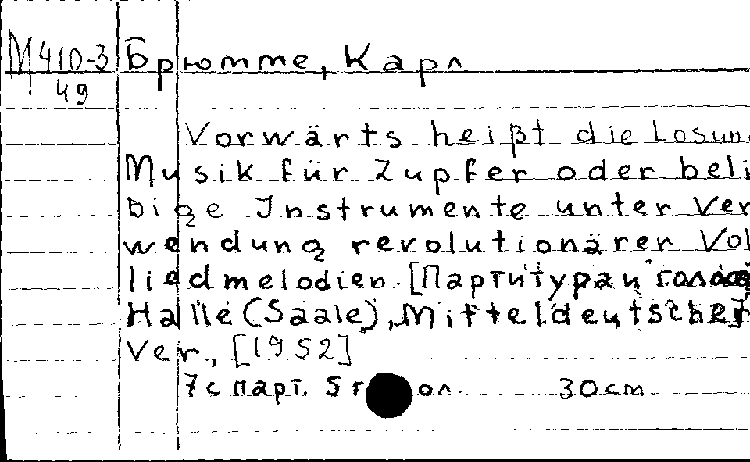 М410-3 Брюмме, Карл
49
Vorwärts heißt die Losun
Musik für Zupfer oder beli
bige Instrumente unter Ver
wendung revolutionärer Vol
liedmelodien. [Партитура и голоса]
Halle (Saale), Mitteldeutscher
Ver., [1952]
7с парт. 5 г ол. 30cm